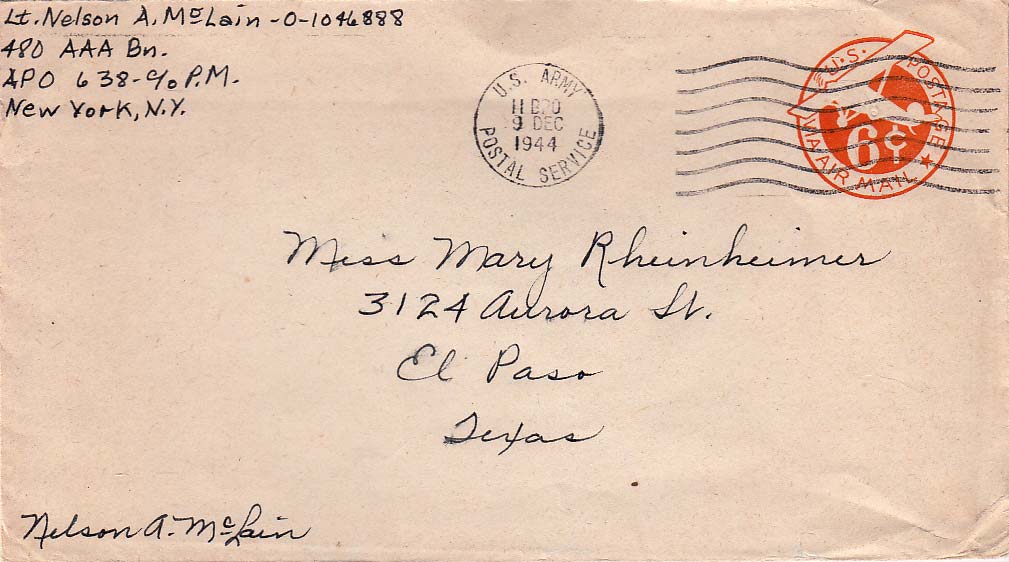 Lt. Nelson A. McLain - O-1046888
480 AAA Bn.
APO 638 - c/o P.M.
New York, N.Y.
U.S. ARMY
9 DEC
1944
POSTAL SERVICE
U.S. POSTAGE
6¢
VIA AIR MAIL
Miss Mary Rheinheimer
3124 Aurora St.
El Paso
Texas
Nelson A. McLain